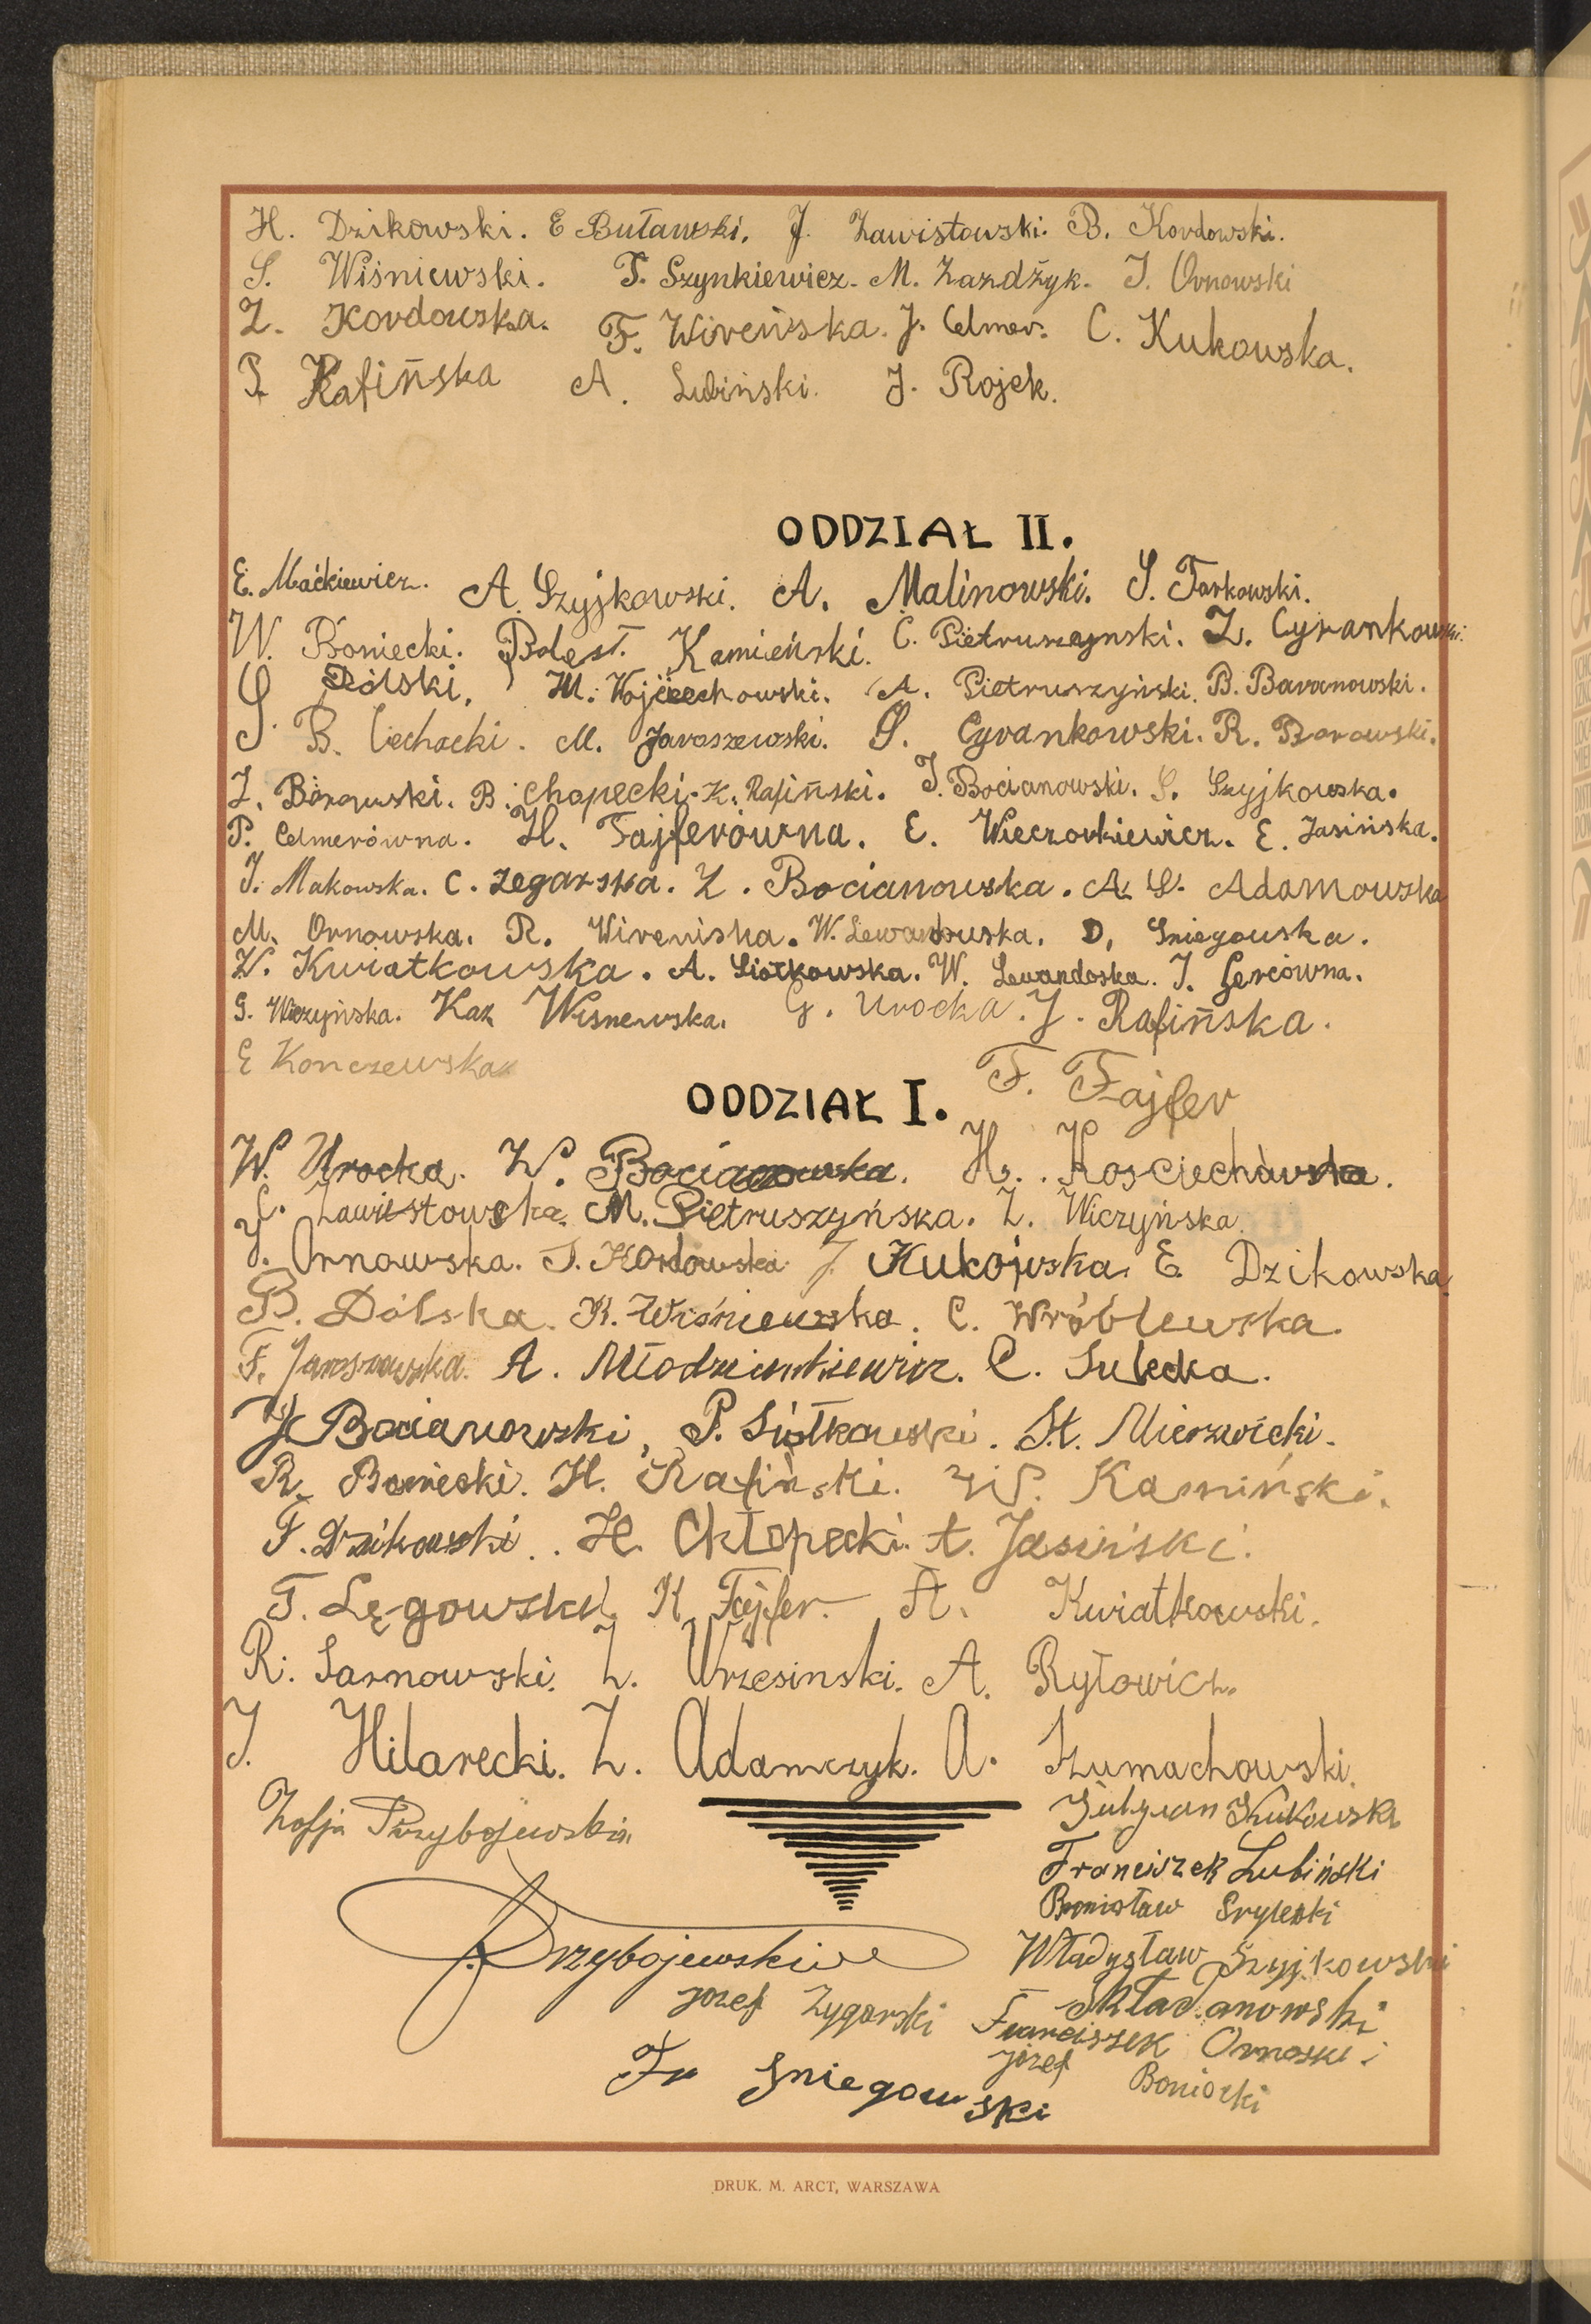 H. Dzikowski. E Buławski. J. Zawistowski. B. Kordowski.
S. Wiśniewski. T. Szynkiewicz. M. Zazdżyk. J. Ornowski
Z. Kordowska. F. Wireńska. J. Celmer. C. Kukowska.
Rafińska A. Lubiński. J. Rojek.
ODDZIAŁ II.
E. Maćkiewicz. A. Szyjkowski. A. Malinowski. S. Tarkowski.
W. Boniecki. Bolesł. Kamieński. C. Pietruszynski. Z. Cyrankowski.
S. Dólski. M. Wojciechowski. A. Pietruszyński. B. Baranowski.
B. Cechacki. M. Jaroszewski. S. Cyrankowski. R. Borowski.
Z. Borowski. B. Chopecki. K. Rafiński. J. Bocianowski. S. Szyjkowska.
P. Celmerówna. H. Fajferówna. E. Wieczorkiewicz. E. Jasińska.
J. Makowska. C. Zegarska. Z. Bocianowska. A. S. Adamowska
M. Ornowska. R. Wireniska. W. Lewandowska. D. Sniegowska.
W. Kwiatkowska. A. Siotkowska. W. Lewandoska. J. Gercówna.
G. Wiczyńska. Kaz Wisnewska. G. Urocka. J. Rafińska.
E Konczewska
ODDZIAŁ I. F. Fajfer
W. Urocka. W. Bocianowska. H. Kosciechawska.
C. Zawistowska. M. Pietruszyńska. Z. Wiczyńska.
J. Ornowska. J. Kordowska J. Kukowska. E. Dzikowska
B. Dólska. K. Wiśniewska. C. Wróblewska.
F. Jaroszewska. A. Młodzienkiewicz. C. Sulecka.
J. Bocianowski, P. Siotkowski. St. Mierzwicki.
R. Boniecki. H. Rafiński. W. Kamiński.
F. Dzikowski. H. Chłopecki. A. Jasiński.
T. Lęgowski K Fajfer. A. Kwiatkowski.
R. Sarnowski. Z. Wrzesinski. A. Ryłowicz.
J. Hilarecki. Z. Adamczyk. A. Szumachowski.
Zofja Przybojewska.
Julyian Kukowski
Franciszek Lubiński
Bronisław
Władysław Szyjkowski
Przybojewski
Składanowski
Józef Zygarski Franciszek Ornoski
Józef Boniecki
Fr Sniegowski
DRUK. M. ARCT, WARSZAWA